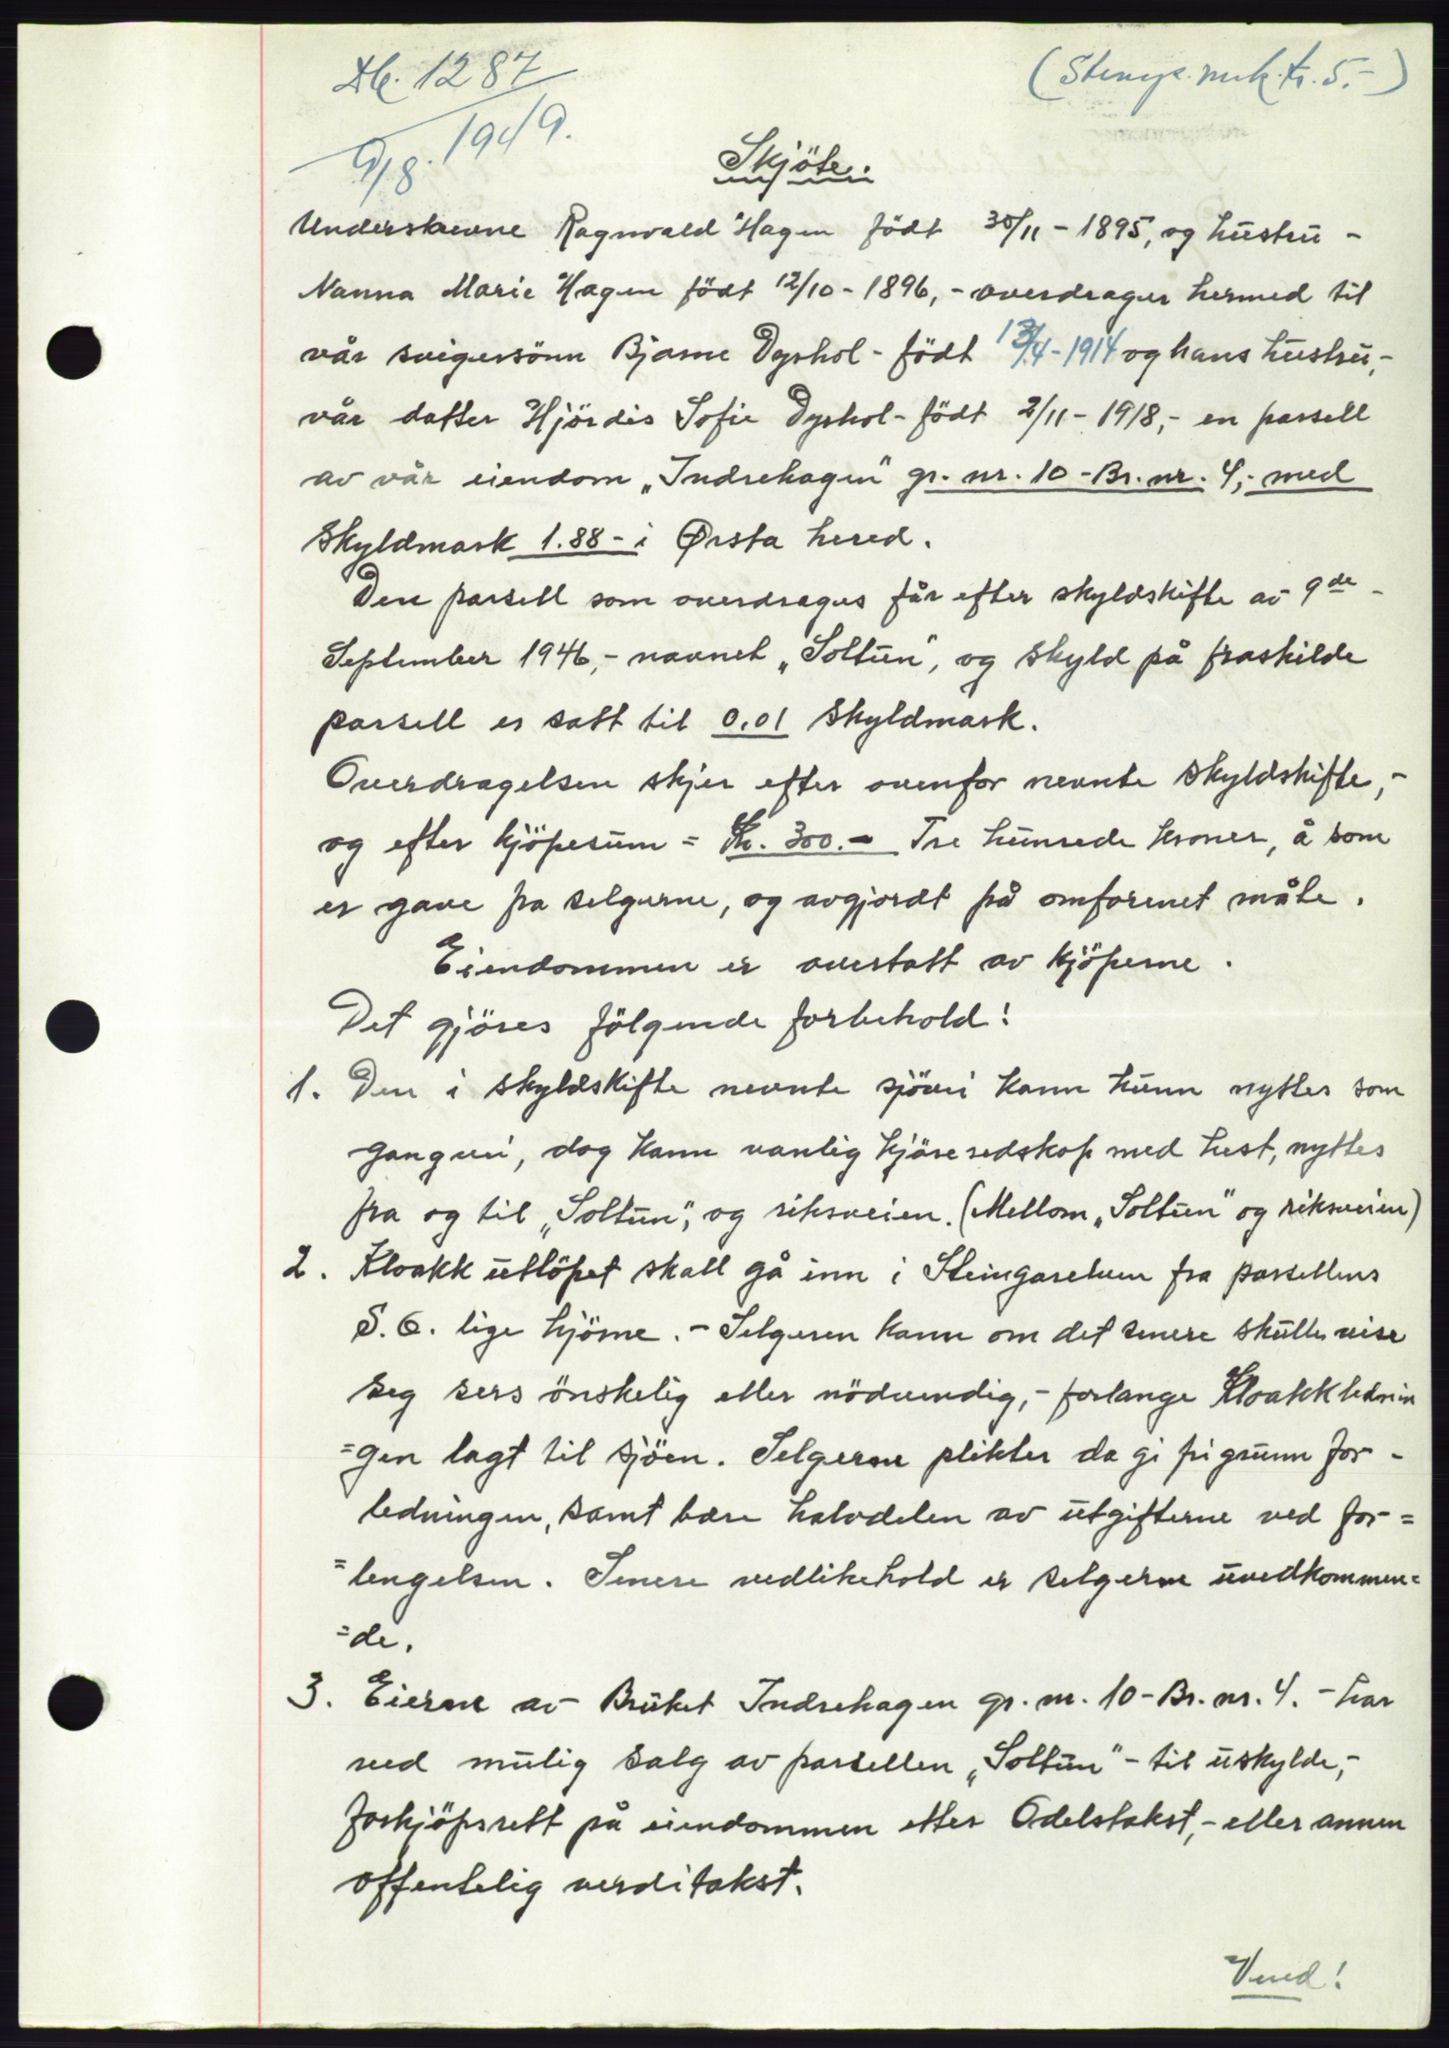 Db. 1287
9/8. 1949.
(Stemp. mrk. kr. 5.-)
Skjöte.
Underskrevne Ragnvald Hagen födt 30/11 - 1895, og hustru -
Nanna Marie Hagen födt 12/10 - 1896, - overdrager hermed til
vår svigersönn Bjarne Dyrhol - födt 13/4 - 1914 og hans hustru, -
vår datter Hjördis Sofie Dyrhol - födt 2/11 - 1918, - en parsell
av vår eiendom „Indrehagen" gr. nr. 10 - Br. nr. 4, - med
Skyldmark 1.88 - i Ørsta hered.
Den parsell som overdrages får efter skyldskifte av 9de -
September 1946, - navnet „Soltun", og skyld på fraskilde
parsell er satt til 0,01 Skyldmark.
Overdragelsen skjer efter ovenfor nevnte skyldskifte, -
og efter kjöpesum = Kr. 300.- Tre hunrede kroner, å som
er gave fra selgerne, og avgjordt på omforenet måte.
Eiendommen er overtatt av kjöperne.
Det gjöres fölgende forbehold!
1. Den i skyldskifte nevnte sjövei kann kunn nyttes som
gangvei, dog kann vanlig kjöreredskap med hest, nyttes
fra og til „Soltun", og riksveien. (Mellom „Soltun" og riksveien)
2. Kloakk utlöpet skall gå inn i Steingarelven fra parsellens
S. Ö. lige hjörne. - Selgeren kann om det senere skulle vise
seg sers önskelig eller nödvendig, - forlange Kloakk lednin
=gen lagt til sjöen. Selgerne plikter da gi fri grunn for -
ledningen, samt bære halvdelen av utgifterne ved for=
=lengelsen. Senere vedlikehold er selgerne uvedkommen=
=de.
3. Eierne av Bruket Indrehagen gr. nr. 10 - Br. nr. 4. - har
ved mulig salg av parsellen „Soltun" - til uskylde, -
forkjöpsrett på eiendommen etter Odelstakst, - eller annen
offentelig verditakst.
Vend!